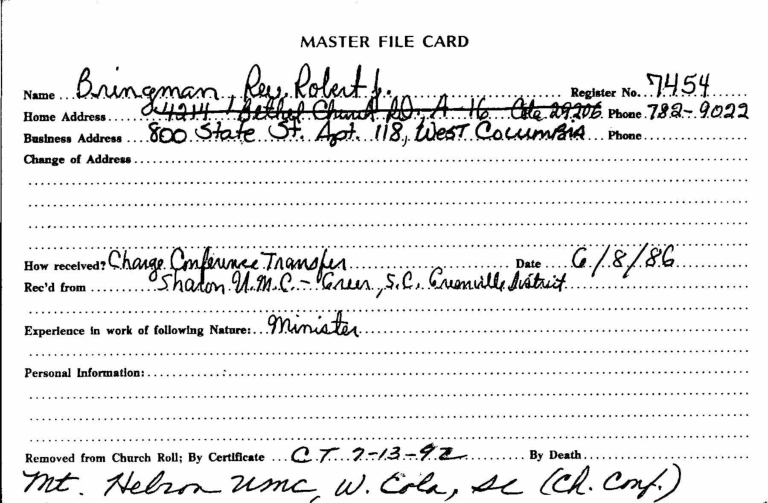 MASTER FILE CARD
Name Bringman, Rev. Robert J. Register No. 7454
Home Address 4214 Bethel Church RD. A-16 Cola 29206 Phone 782-9022
Business Address 800 State St. Apt. 118, West Columbia Phone
Change of Address
How received? Charge Conference Transfer Date 6/8/86
Rec'd from Sharon U.M.C. - Greer, S.C. Greenville District
Experience in work of following Nature: Minister
Personal Information:
Removed from Church Roll; By Certificate C.T. 7-13-92 By Death
Mt. Hebron UMC, W. Cola, SC (Ch. Conf.)